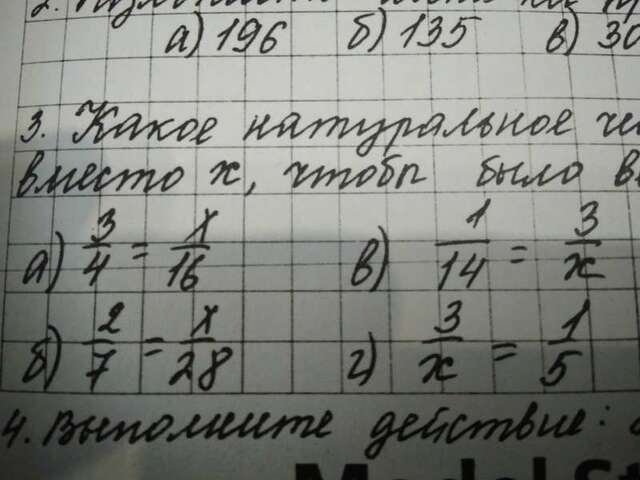 а) 196 б) 135 в) 30
3. Какое натуральное
вместо x, чтобы было
а) 3/4 = x/16 в) 1/14 = 3/x
б) 2/7 = x/28 г) 3/x = 1/5
4. Выполните действие: